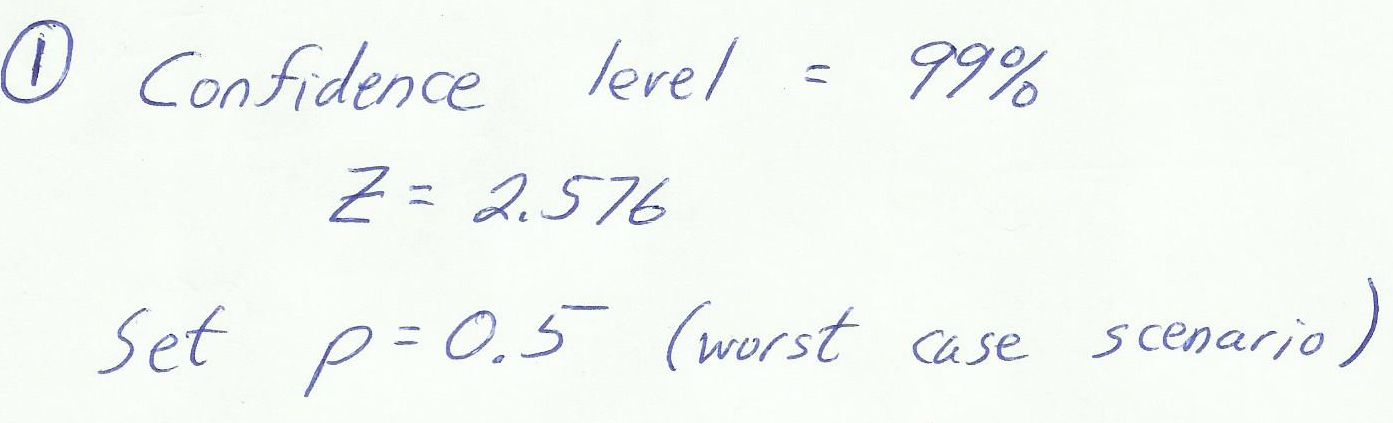 ① Confidence level = 99%
Z = 2.576
Set p = 0.5 (worst case scenario)